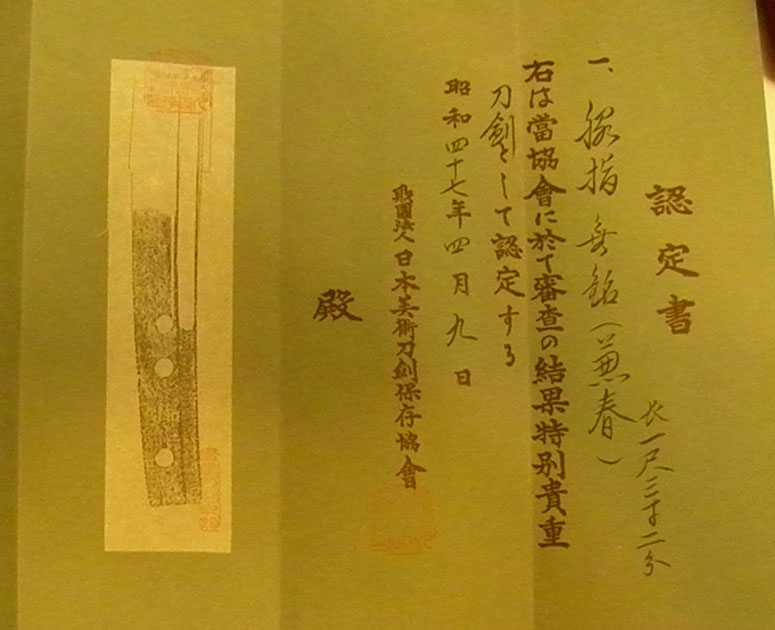 認定書
一、脇指 無銘(兼春)
長一尺三寸二分
右は當協會に於て審査の結果特別貴重
刀劍として認定する
昭和四十七年四月九日
財團法人日本美術刀劍保存協會
殿